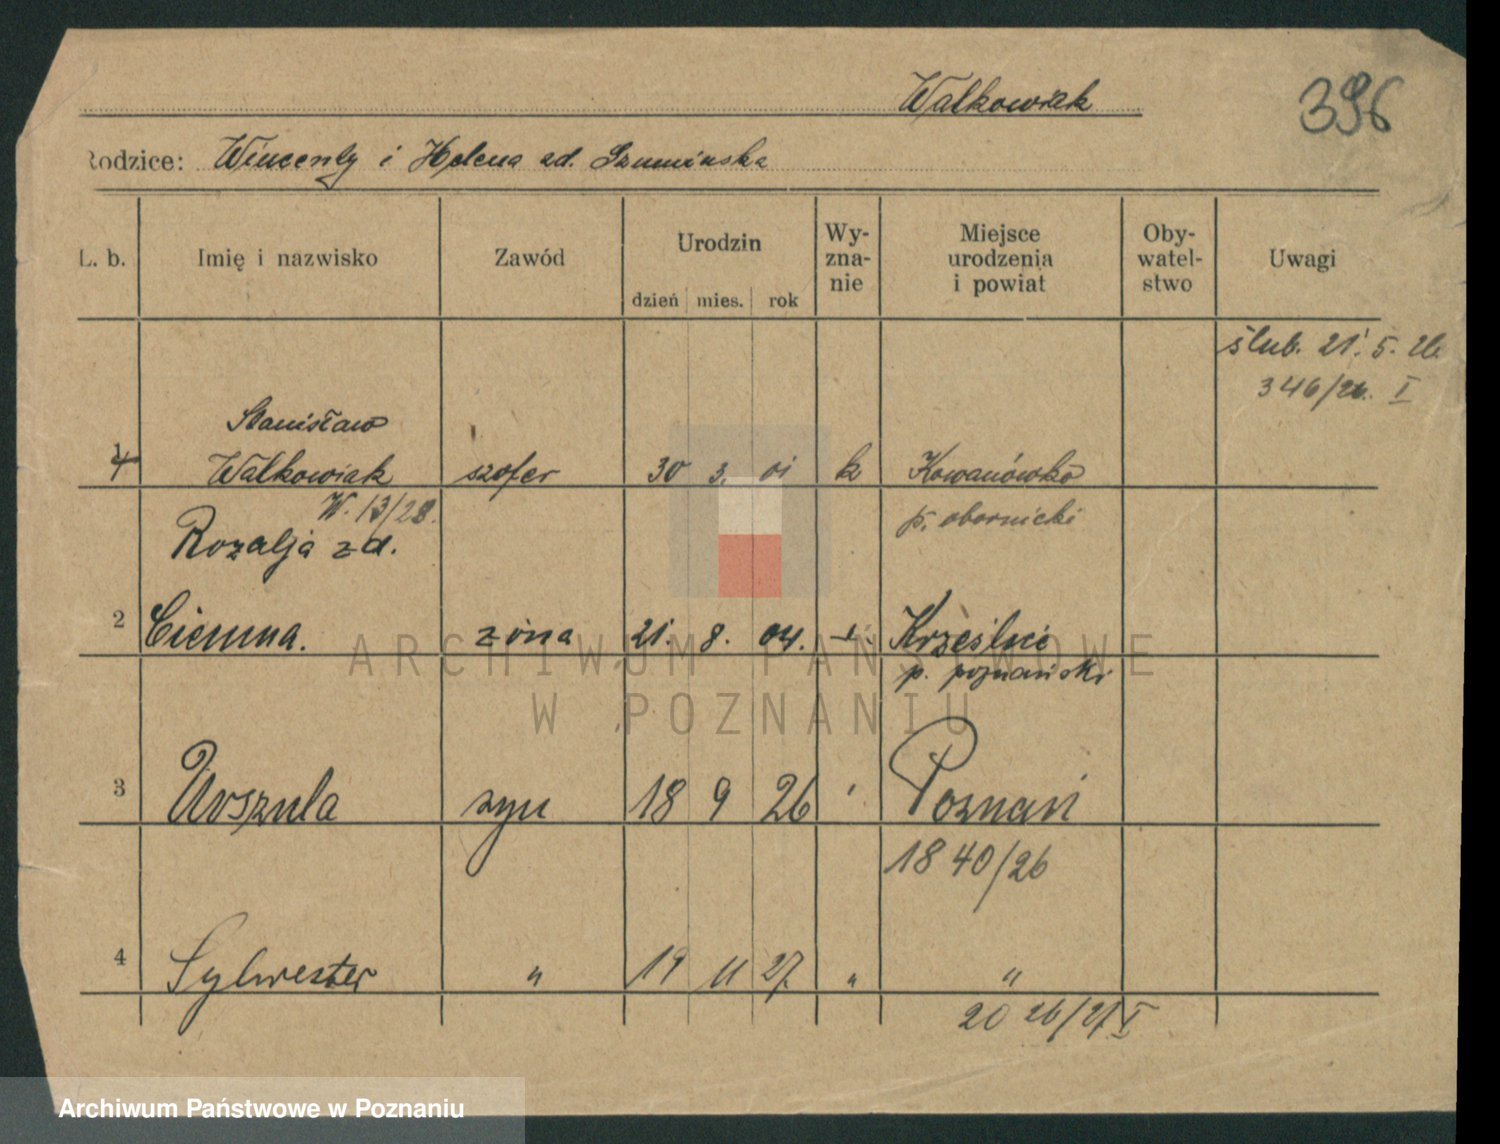 Walkowiak
396
Rodzice: Wincenty i Helena zd. Szumińska
L. b. Imię i nazwisko Zawód Urodzin dzień mies. rok Wy-zna-nie Miejsce urodzenia i powiat Oby-watel-stwo Uwagi
ślub. 21. 5. 26.
346/26. I
Stanisław
1 Walkowiak szofer 30 3. 01 k Kowanówko
W. 13/28. p. obornicki
Rozalja zd.
2 Ciemna. żona 21. 8. 04. Krześlice
p. poznański
3 Urszula syn 18 9 26 Poznań
1840/26
4 Sylwester " 19 11 27. " "
2026/27 I
ARCHIWUM PAŃSTWOWE
W POZNANIU
Archiwum Państwowe w Poznaniu